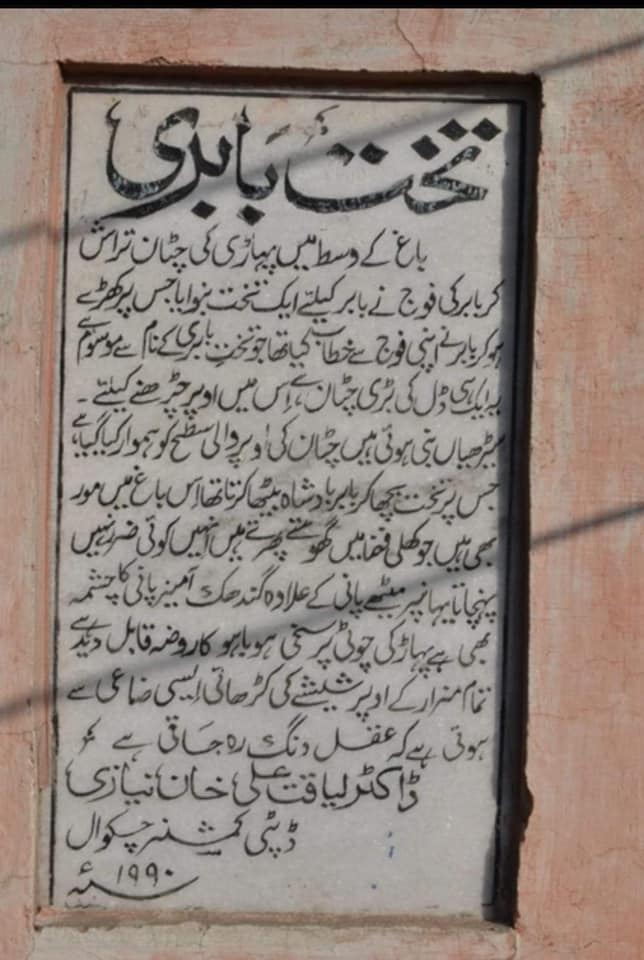 تخت بابری
باغ کے وسط میں پہاڑی کی چٹان تراش
کر بابر کی فوج نے بابر کیلئے ایک تخت بنوایا جس پر کھڑے
ہو کر بابر نے اپنی فوج سے خطاب کیا تھا جو تختِ بابری کے نام سے موسوم ہے
یہ ایک ہی ڈل کی بڑی چٹان ہے، اِس میں اوپر چڑھنے کیلئے ۔
سیڑھیاں بنی ہوئی ہیں چٹان کی اوپر والی سطح کو ہموار کیا گیا ہے،
جس پر تخت بچھا کر بابر بادشاہ بیٹھا کرتا تھا اِس باغ میں مور
بھی ہیں جو کھلی فضا میں گھومتے پھرتے ہیں اُنہیں کوئی ضرر نہیں
پہنچاتا یہاں پر میٹھے پانی کے علاوہ گندھک آمیز پانی کا چشمہ
بھی ہے پہاڑ کی چوٹی پر سخی ہو باہو کا روضہ قابل دید ہے
تمام مزار کے اوپر شیشے کی کڑھائی ایسی صناعی سے
ہوتی ہے کہ عقل دنگ رہ جاتی ہے
ڈاکٹر لیاقت علی خان نیازی
ڈپٹی کمشنر چکوال
۱۹۹۰ء